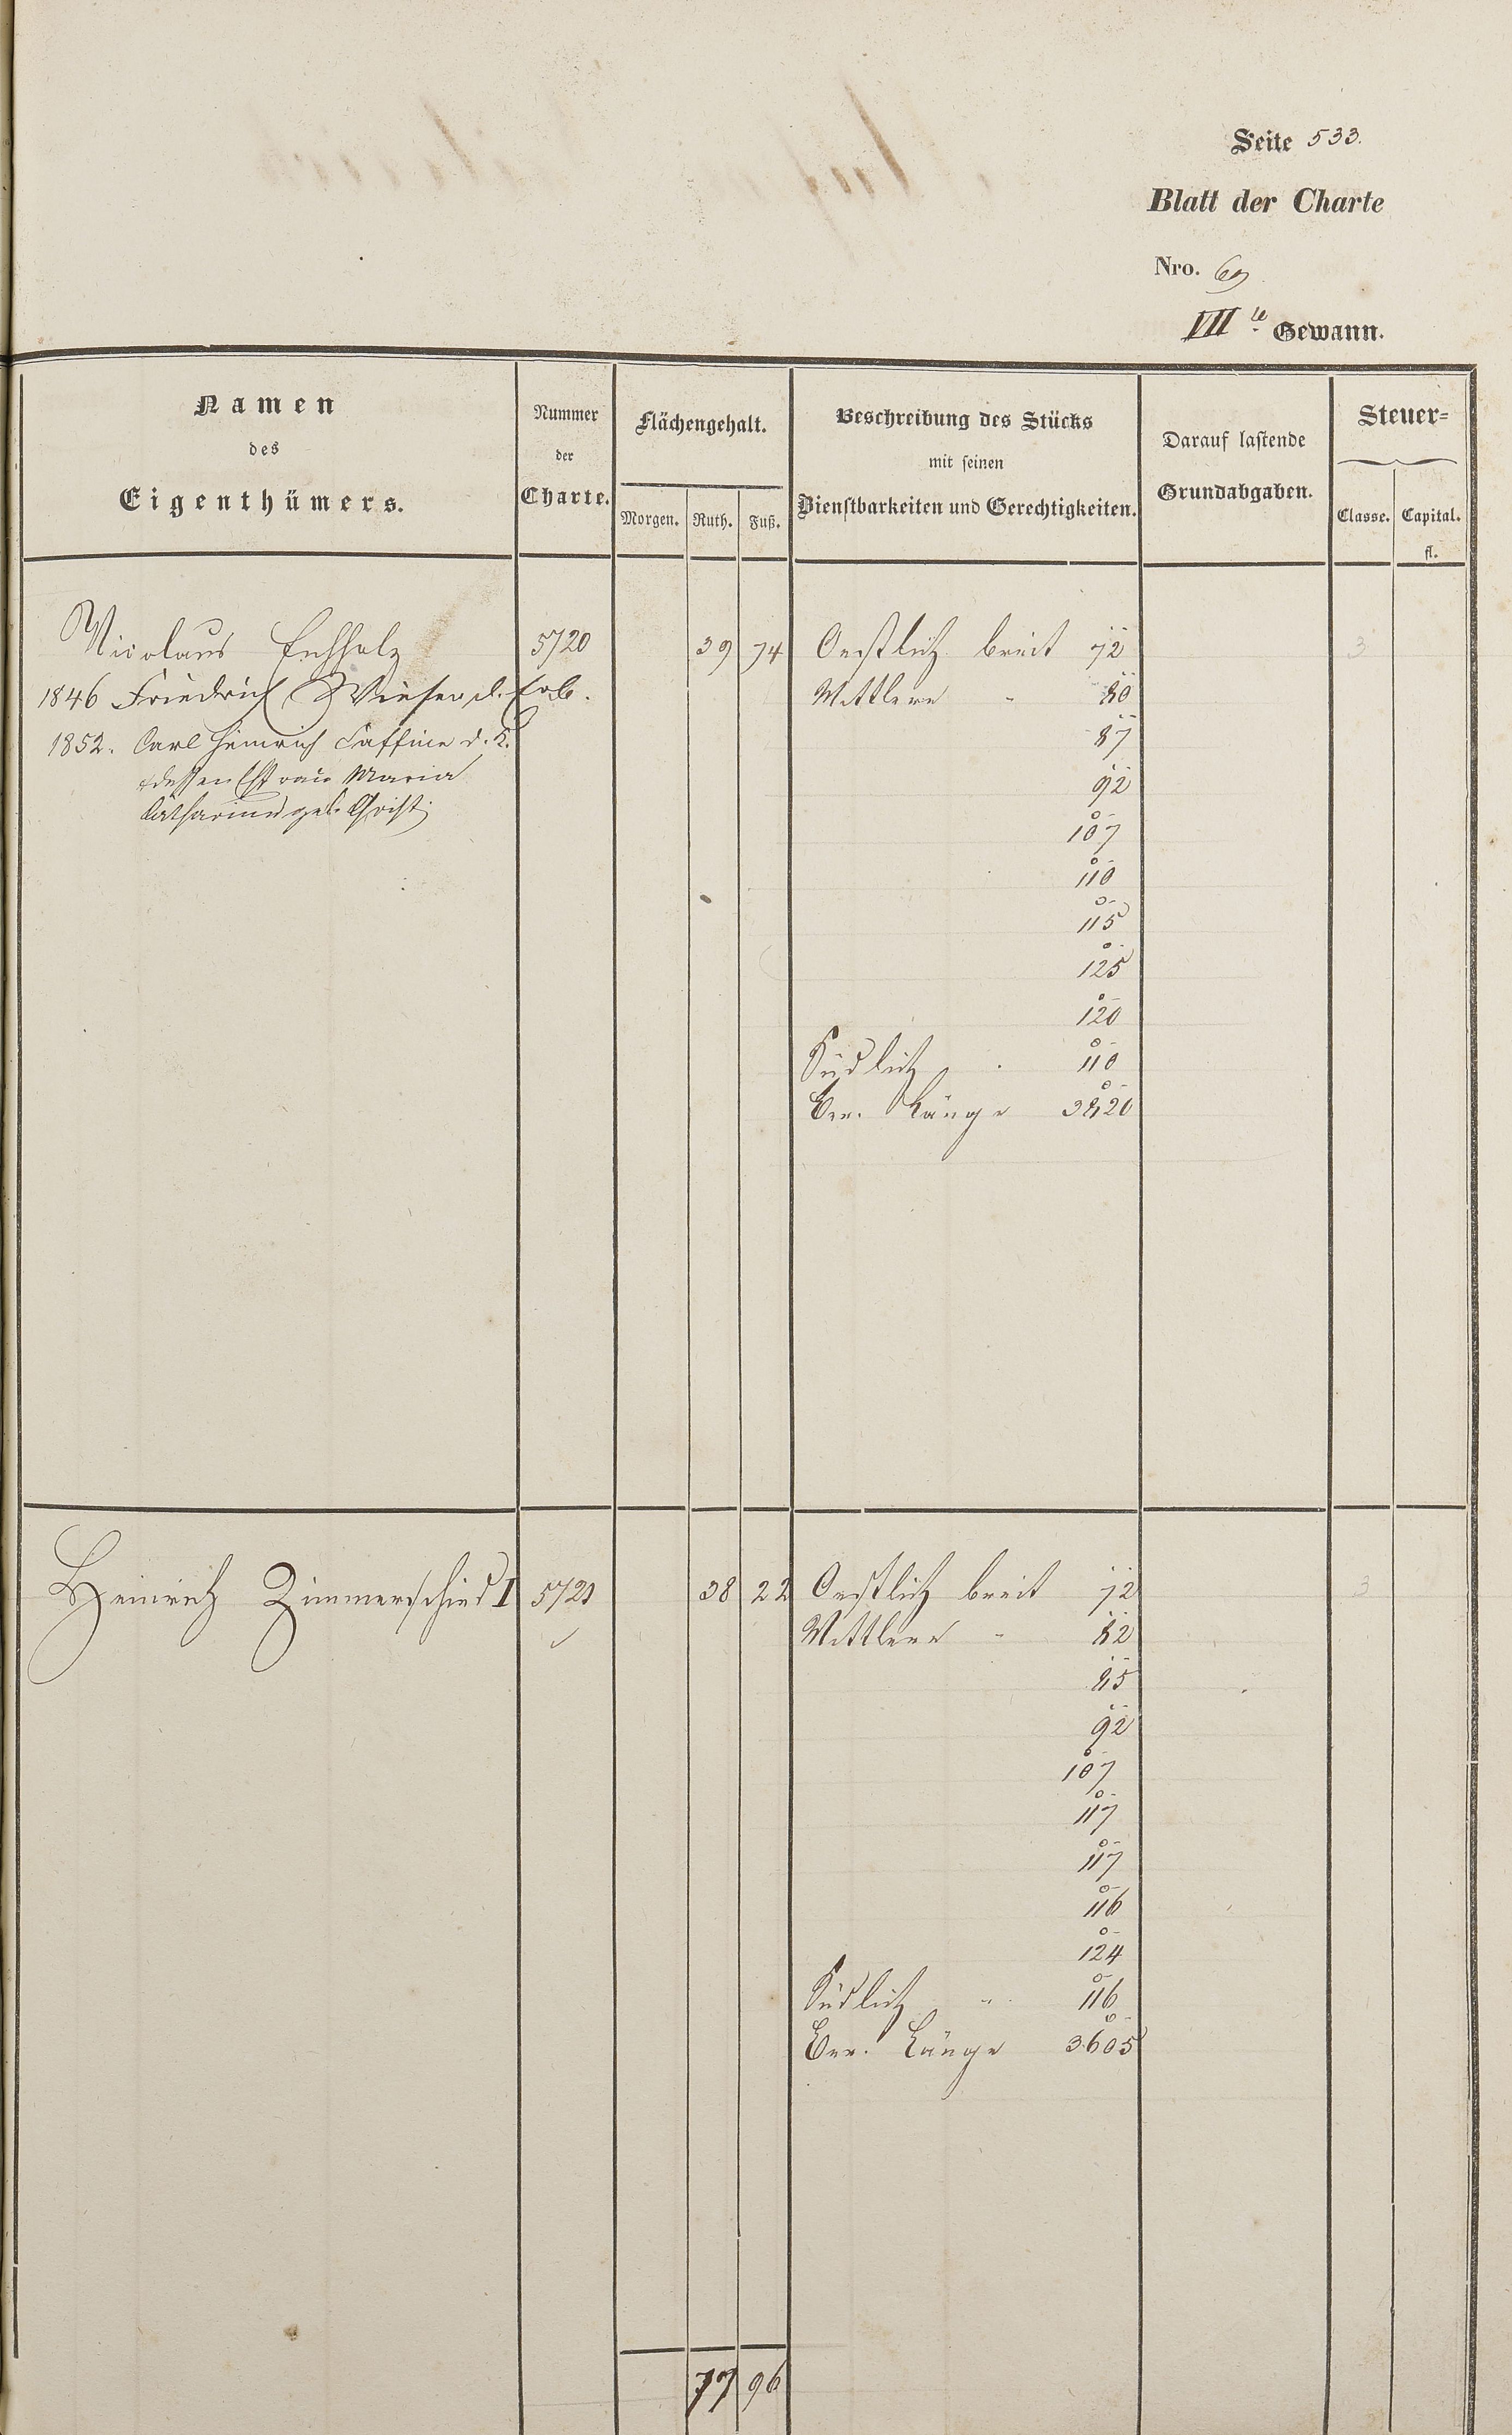 Seite 533.
Blatt der Charte
Nro. 69
VII te Gewann.
Namen
des
Eigenthümers.
Nummer
der
Charte.
Flächengehalt.
Morgen. Ruth. Fuß.
Beschreibung des Stücks
mit seinen
Dienstbarkeiten und Gerechtigkeiten.
Darauf lastende
Grundabgaben.
Steuer-
Classe. Capital.
fl.
Nicolaus Eichholz 5720 39 74 Oestlich breit 72 3
1846 Friedrich Wieser d. Erb. Mittlere " 80
1852. Carl Heinrich Saffine d. K. 87
dessen Ehfrau Maria 92
Catharina geb. Christ. 107
110
115
125
120
Südlich " 110
Länge 3820
Heinrich Zimmerschied I 5721 38 22 Oestlich breit 72 3
Mittlere " 82
85
92
107
117
117
116
124
Südlich " 116
Länge 3605
77 96